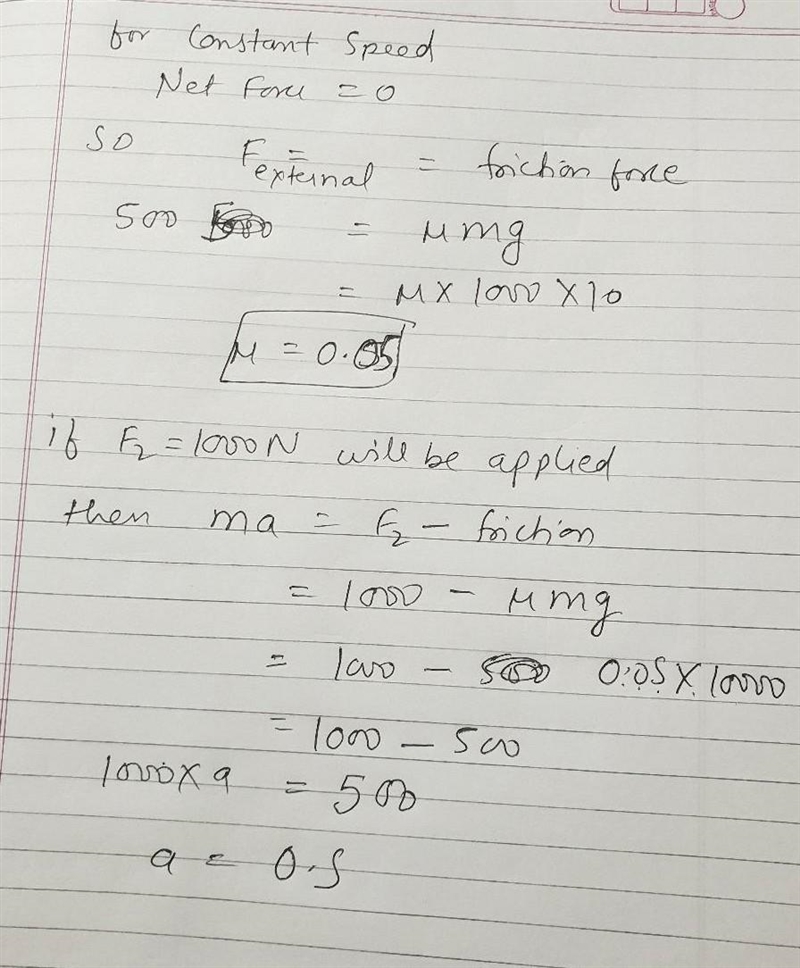 for Constant Speed
Net Force = 0
SO F external = = friction force
500 = μmg
= μ X 1000 X 10
μ = 0.05
if F₂ = 1000N will be applied
then ma = F₂ - friction
= 1000 - μmg
= 1000 - 0.05 X 10000
= 1000 - 500
1000 X a = 500
a = 0.5